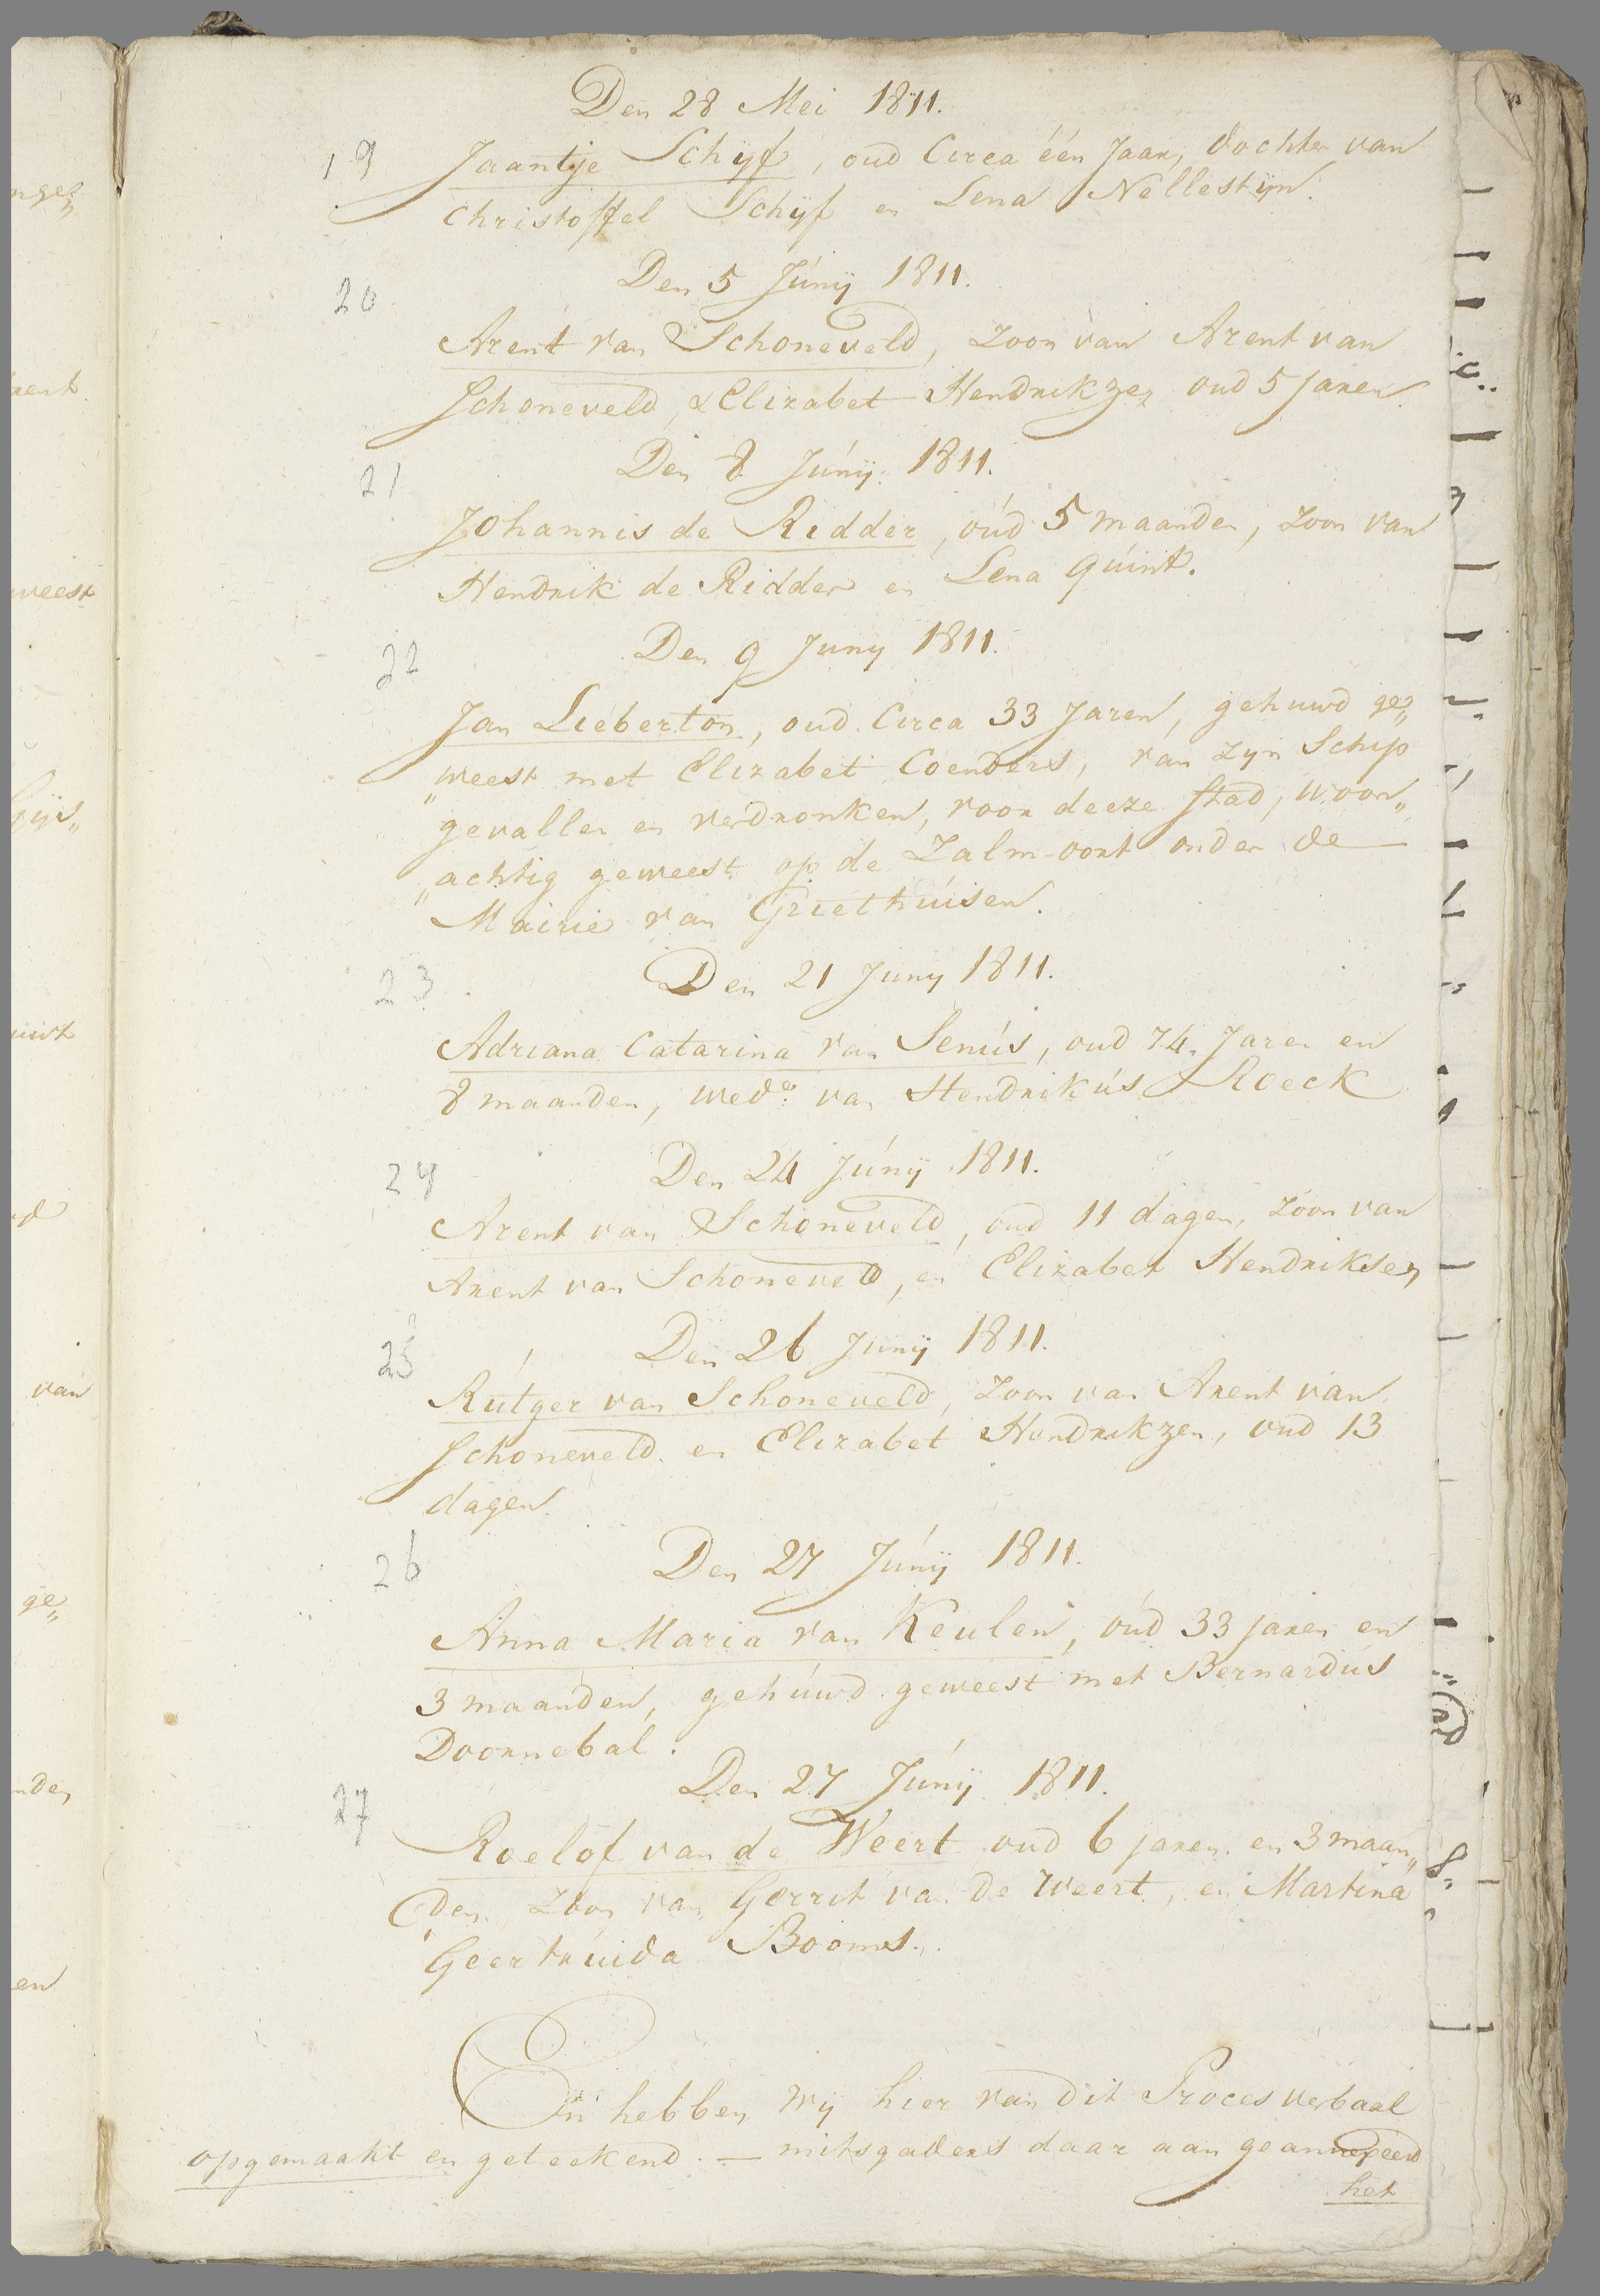 Den 28 Mei 1811.
19 Jaantje Schijf, oud Circa één Jaar, dochter van
Christoffel Schijf en Lena Nellestijn.
Den 5 Júnij 1811.
20
Arent van Schoneveld, zoon van Arent van
Schoneveld, & Elizabet Hendrikzen oud 5 Jaren.
Den 8 Júnij 1811.
21
Johannis de Ridder, oúd 5 maanden, zoon van
Hendrik de Ridder en Lena Quint.
Den 9 Juny 1811.
22
Jan Lieberton, oud Circa 33 Jaren, gehuwd ge„
„weest met Elizabet Coenders, van zijn Schip
gevallen en verdronken, voor deeze stad, woon„
„achtig geweest op de Zalm-oort onder de
Mairie van Griethúisen.
23 Den 21 Juny 1811.
Adriana Catarina van Senús, oud 74 Jaren en
8 maanden, wede. van Hendrikús Roeck
Den 24 Júnij 1811.
24
Arent van Schoneveld, oud 11 dagen, zoon van
Arent van Schoneveld, en Elizabet Hendriksen
Den 26 Junij 1811.
25
Rútger van Schoneveld, zoon van Arent van
Schoneveld en Elizabet Hendrikzen, oud 13
dagen.
Den 27 Júnij 1811.
26
Anna Maria van Keulen, oúd 33 jaren en
3 maanden, gehúwd geweest met Bernardús
Doornebal.
Den 27 Júnij 1811.
27
Roelof van de Weert oud 6 jaren en 3 maan„
„den zoon van Gerrit van de Weert, en Martina
Geertrúida Booms.
En hebben wij hier van dit Proces verbaal
opgemaakt en geteekend. — mitsgaders daar aan geannexeerd
het